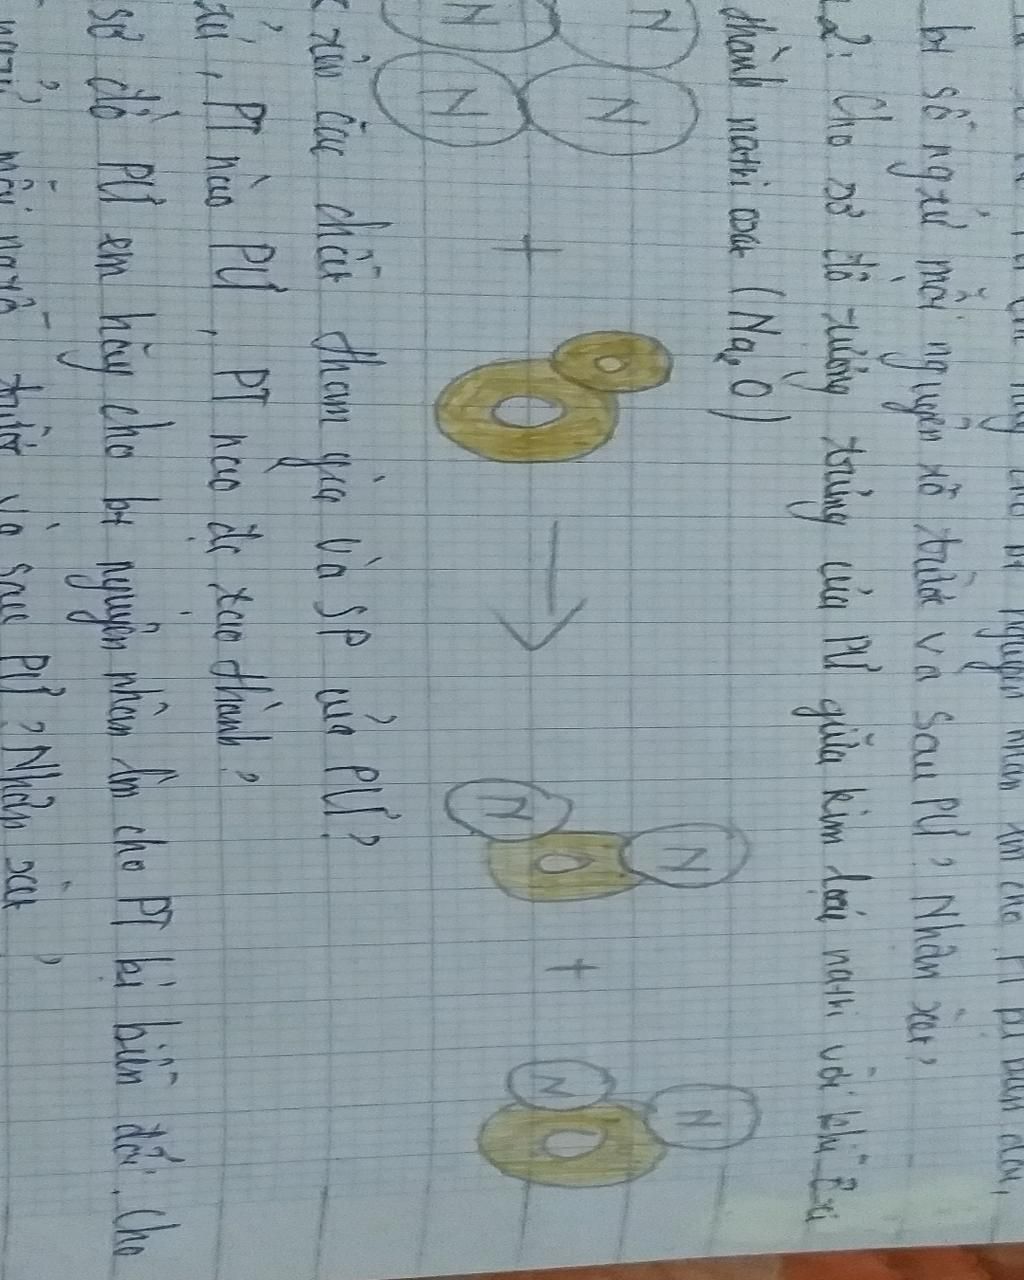 bt số ngtử mỗi nguyên tố trước và sau PƯ? Nhận xét?
2: Cho sơ đồ tượng trưng của PƯ giữa kim loại natri với khí
thành natri oxit (Na₂O)
N N
N N + O O → N O N + N O N
tên các chất tham gia và SP của PƯ?
, PT nào PƯ, PT nào đc tạo thành?
sơ đồ PƯ em hãy cho bt nguyên nhân làm cho PT bị biến đổi, cho
mỗi ngtố trước và sau PƯ? Nhận xét?